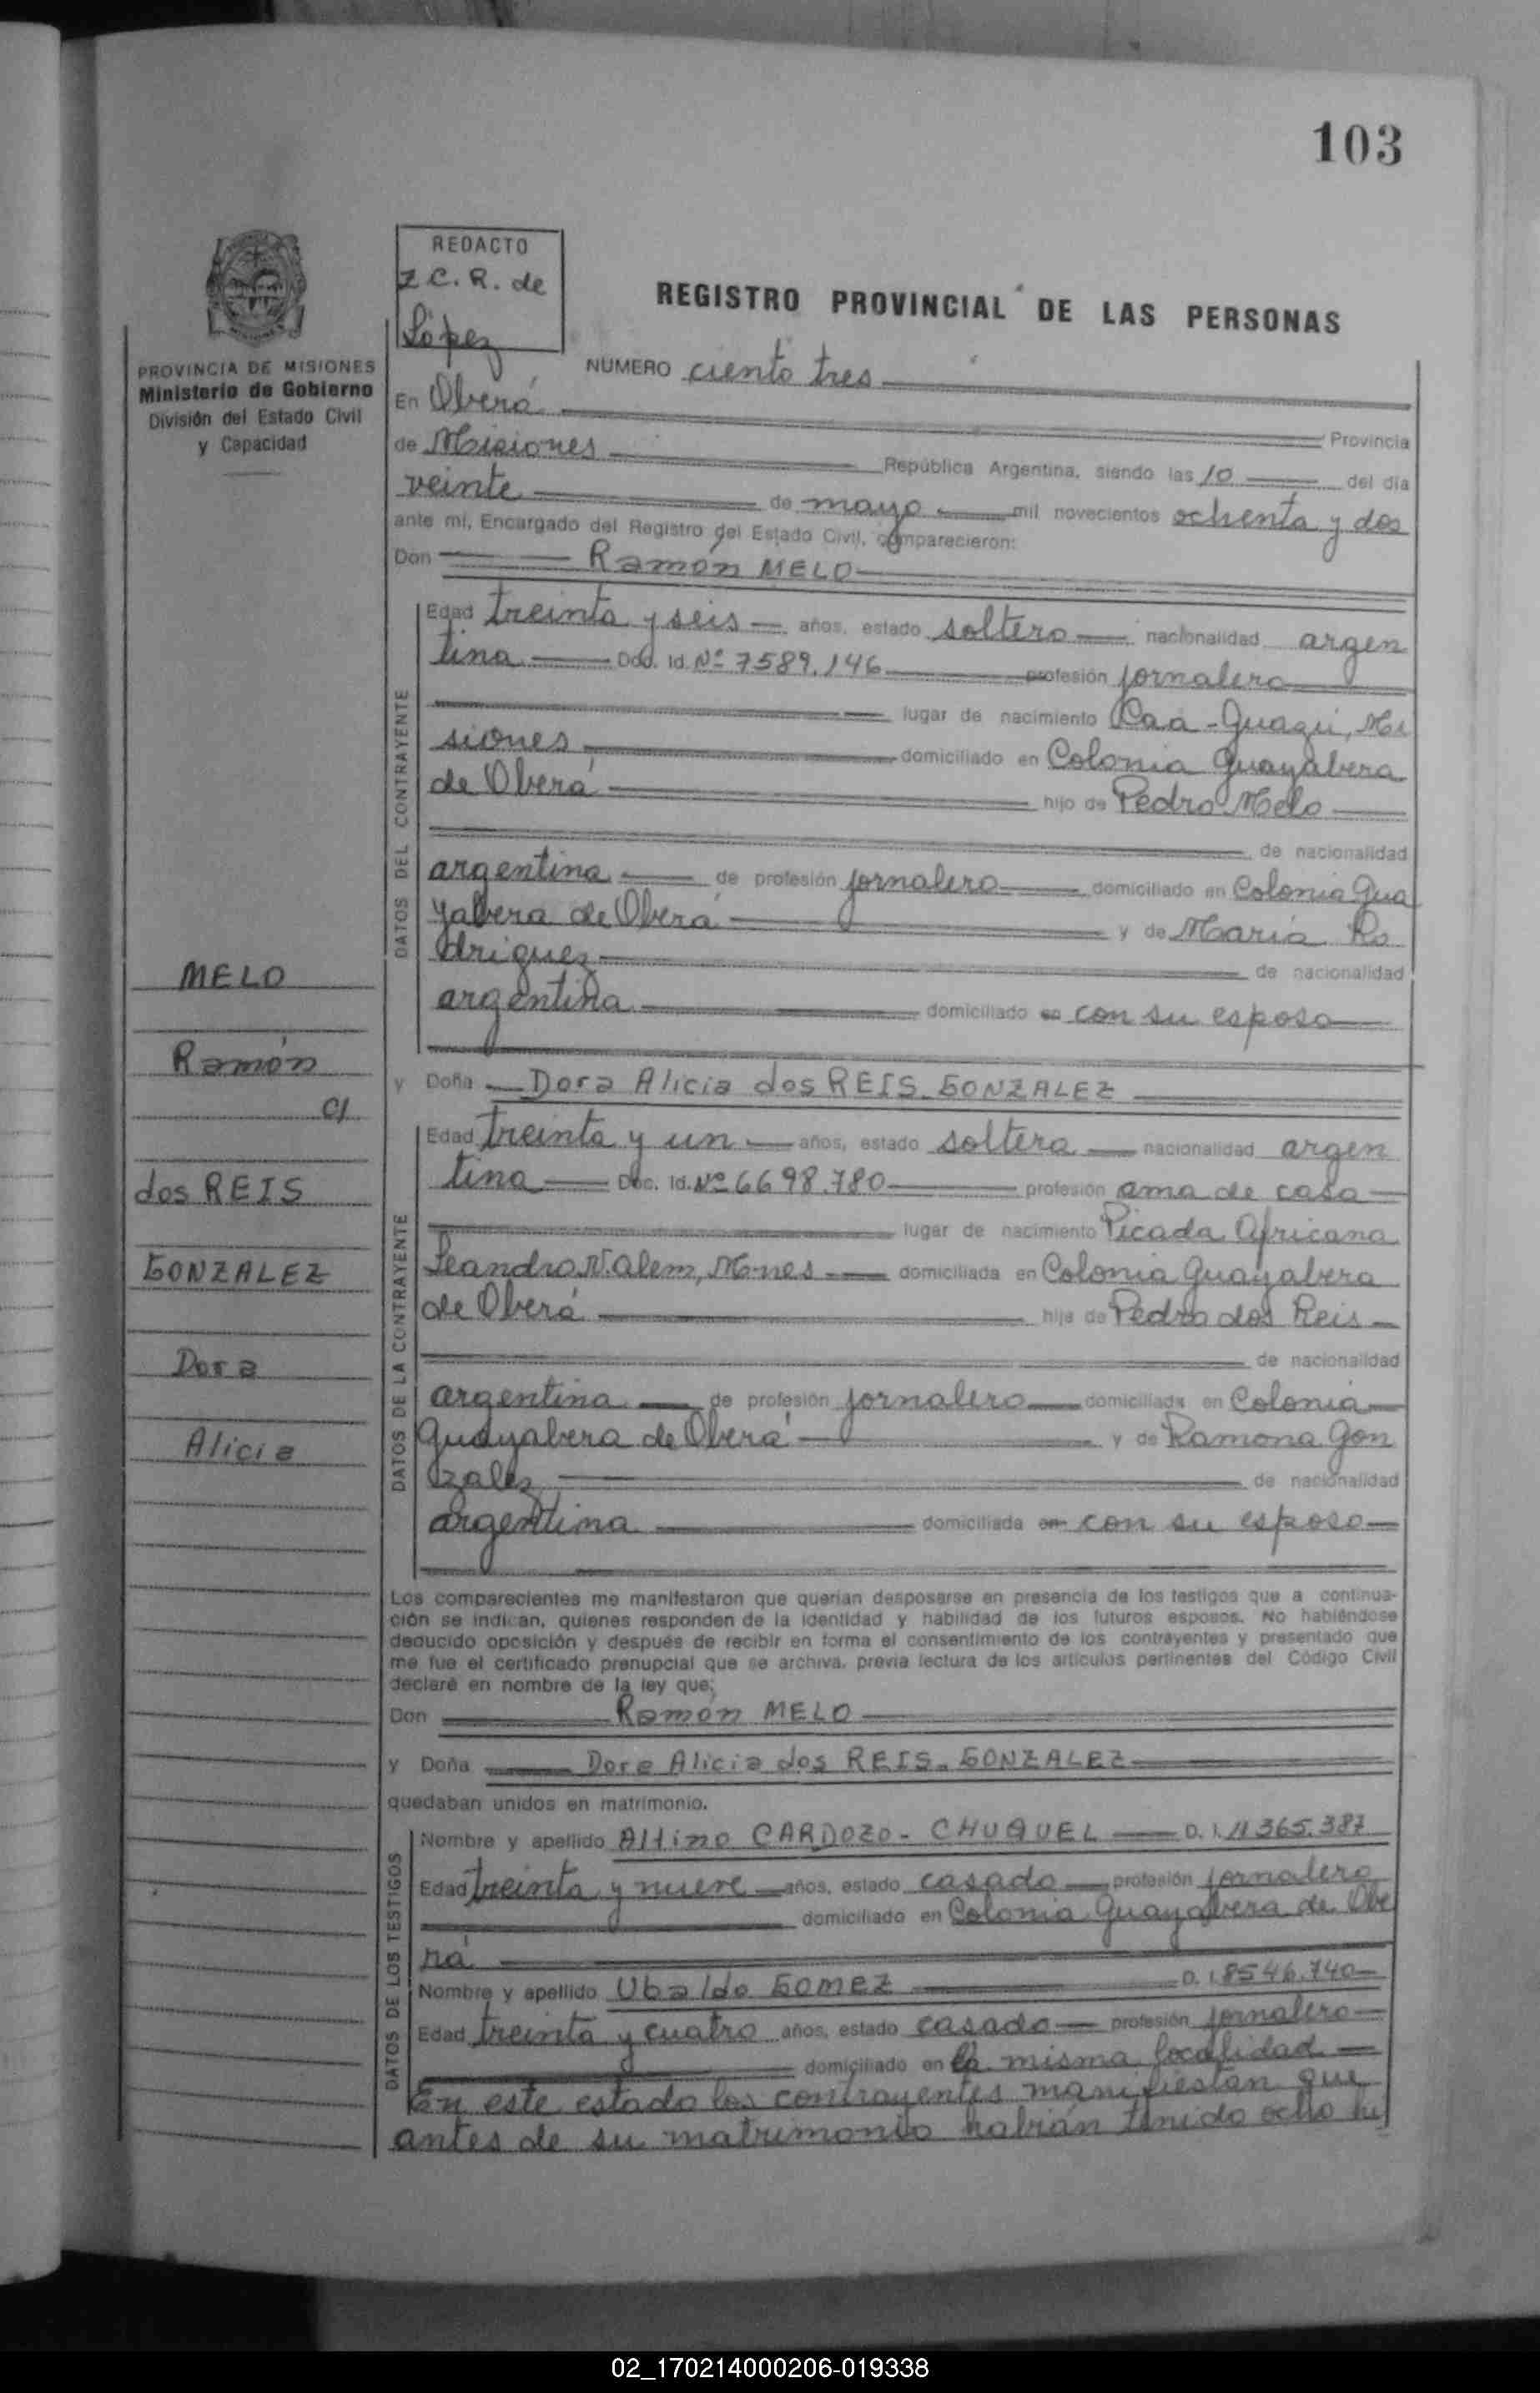 103
REDACTO
Z.C.R. de
López
REGISTRO PROVINCIAL DE LAS PERSONAS
PROVINCIA DE MISIONES
Ministerio de Gobierno
División del Estado Civil
y Capacidad
NUMERO ciento tres
En Oberá Provincia
de Misiones República Argentina, siendo las 10 del día
veinte de mayo mil novecientos ochenta y dos
ante mí, Encargado del Registro del Estado Civil, comparecieron:
Don Ramón MELO
DATOS DEL CONTRAYENTE
Edad treinta y seis años, estado soltero nacionalidad argen
tina Doc. Id. Nº 7589.146 profesión jornalero
lugar de nacimiento Caa-Guaqui, Mi
siones domiciliado en Colonia Guayabera
de Oberá hijo de Pedro Melo
de nacionalidad
argentina de profesión jornalero domiciliado en Colonia Gua
yabera de Oberá y de María Ro
driguez de nacionalidad
argentina domiciliado en con su esposo
y Doña Dora Alicia dos REIS-GONZALEZ
DATOS DE LA CONTRAYENTE
Edad treinta y un años, estado soltera nacionalidad argen
tina Doc. Id. Nº 6698.780 profesión ama de casa
lugar de nacimiento Picada Africana
Leandro N. Alem, M-nes domiciliada en Colonia Guayabera
de Oberá hija de Pedro dos Reis
de nacionalidad
argentina de profesión jornalero domiciliada en Colonia
Guayabera de Oberá y de Ramona Gon
zalez de nacionalidad
argentina domiciliada en con su esposo
MELO
Ramón
c/
dos REIS
GONZALEZ
Dora
Alicia
Los comparecientes me manifestaron que querían desposarse en presencia de los testigos que a continua-
ción se indican, quienes responden de la identidad y habilidad de los futuros esposos. No habiéndose
deducido oposición y después de recibir en forma el consentimiento de los contrayentes y presentado que
me fue el certificado prenupcial que se archiva, previa lectura de los artículos pertinentes del Código Civil
declaré en nombre de la ley que:
Don Ramón MELO
y Doña Dora Alicia dos REIS-GONZALEZ
quedaban unidos en matrimonio.
DATOS DE LOS TESTIGOS
Nombre y apellido Altino CARDOZO-CHUQUEL D.I. 11365.387
Edad treinta y nueve años, estado casado profesión jornalero
domiciliado en Colonia Guayabera de Obe
rá
Nombre y apellido Ubaldo GOMEZ D.I. 8546.740
Edad treinta y cuatro años, estado casado profesión jornalero
domiciliado en la misma localidad
En este estado los contrayentes manifiestan que
antes de su matrimonio habían tenido ocho hi
02_170214000206-019338